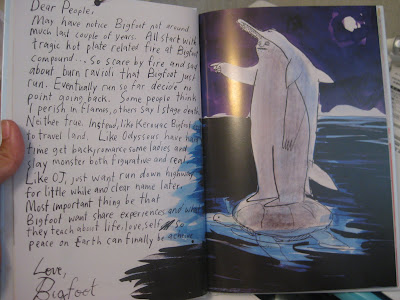 Dear People,
May have notice Bigfoot not around
much last couple of years. All start with
tragic hot plate related fire at Bigfoot
compound... So scare by fire and sad
about burn ravioli that Bigfoot just
run. Eventually run so far decide no
point going back. Some people think
I perish in flames, others say I stage death.
Neither true. Instead, like Kerouac Bigfoot
to travel land. Like Odysseus have hard
time get back, romance some ladies and
slay monster both figurative and real.
Like OJ, just want run down highway
for little while and clear name later.
Most important thing be that
Bigfoot want share experiences and what
they teach about life, love, self so
peace on Earth can finally be achieve.
Love,
Bigfoot